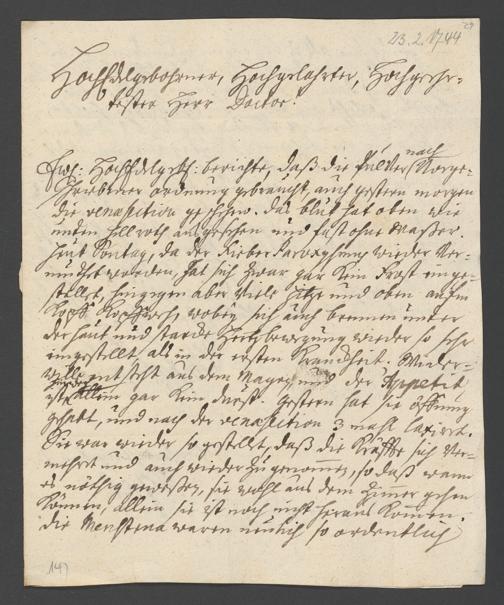 23.2.1744
HochEdelgebohrner, Hochgelahrter, Hochgeehr-
tester Herr Doctor.
Ew: HochEdelgeb: berichte, daß die Pulver nach Vorge-
schriebener ordnung gebraucht, auch gestern morgen
die venæsection geschehen. das bluth hat oben wie
unden hellroth ausgesehen und fast ohne Wasser.
heut Sontag, da der Fieber Paroxysmus wieder ver-
muthet worden, hat sich zwar gar kein Frost einge-
stellet, hingegen aber viele Hitze und oben aufm
Kopf Kopfweh, wobey sich auch brennen unter
der haut und starcke Hertzbewegung wieder so sehr
eingestellt als in der ersten Kranckheit. Wieder-
wille entsteht aus dem Magen und der Appetit
ist allein gar kein durst. gestern hat sie öffnung
gehabt, und nach der venæsection 3 mahl laxirt.
Sie war wieder so gestellt, daß die Kräffte sich ver-
mehret und auch wieder zu genommen, so daß wann
es nöthig gewesen, sie wohl aus dem Zimmer gehen
können, allein sie ist noch nicht heraus kommen.
die Menstrua waren neulich so ordentlich